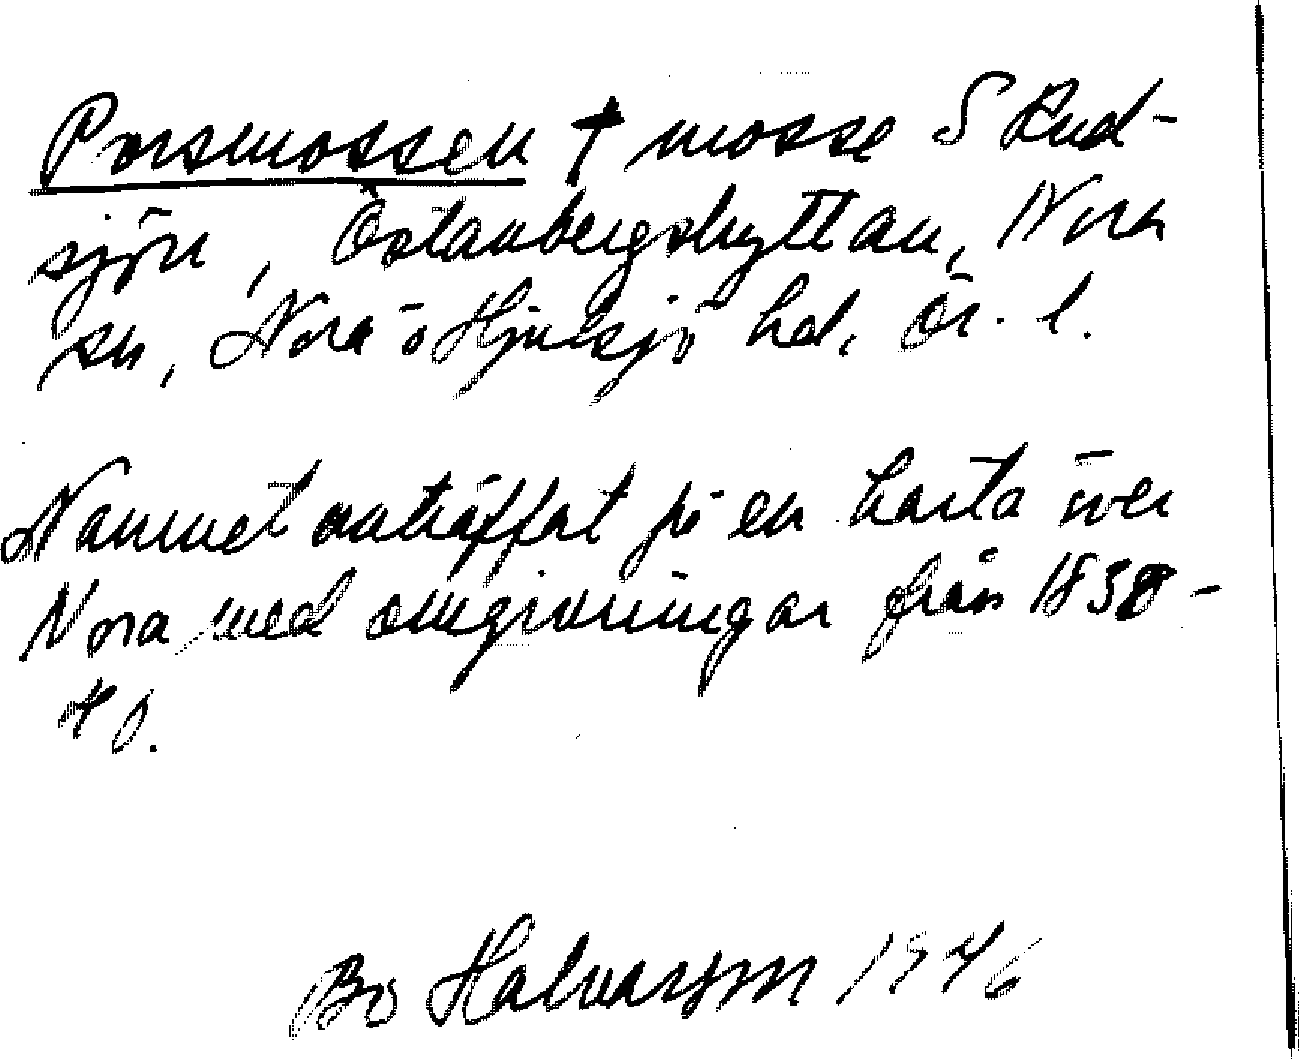 Porsmossen † mosse S Rud-
sjön, Östanbergshyttan, Nora
sn, Nora o Hjulsjö hd. Ör. l.
Namnet anträffat på en karta över
Nora med omgivningar från 1830-
40.
Bo Halvarsson 1946